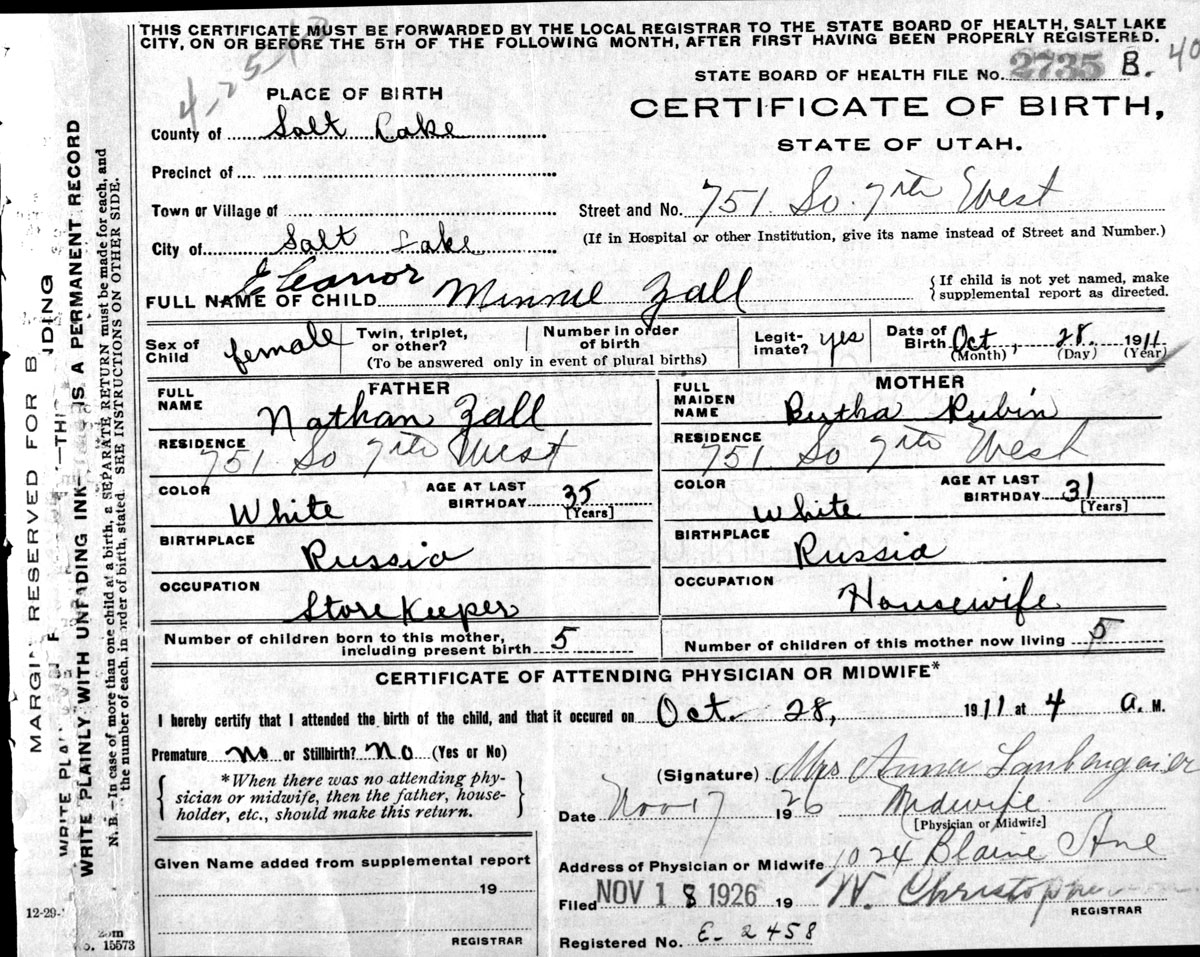 THIS CERTIFICATE MUST BE FORWARDED BY THE LOCAL REGISTRAR TO THE STATE BOARD OF HEALTH, SALT LAKE
CITY, ON OR BEFORE THE 5TH OF THE FOLLOWING MONTH, AFTER FIRST HAVING BEEN PROPERLY REGISTERED.
40
STATE BOARD OF HEALTH FILE No. 2735 B.
PLACE OF BIRTH
CERTIFICATE OF BIRTH,
County of Salt Lake
STATE OF UTAH.
Precinct of
Town or Village of
Street and No. 751 So. 7th West
City of Salt Lake
(If in Hospital or other Institution, give its name instead of Street and Number.)
Eleanor
FULL NAME OF CHILD Minnie Zall
{If child is not yet named, make
supplemental report as directed.
Sex of Child female
Twin, triplet, or other?
Number in order of birth
(To be answered only in event of plural births)
Legitimate? yes
Date of Birth Oct, 28. 1911
(Month) (Day) (Year)
FATHER
MOTHER
FULL NAME Nathan Zall
FULL MAIDEN NAME Bertha Rubin
RESIDENCE 751 So 7th West
RESIDENCE 751 So 7th West
COLOR White
AGE AT LAST BIRTHDAY 35
[Years]
COLOR White
AGE AT LAST BIRTHDAY 31
[Years]
BIRTHPLACE Russia
BIRTHPLACE Russia
OCCUPATION Store Keeper
OCCUPATION Housewife
Number of children born to this mother,
including present birth 5
Number of children of this mother now living 5
CERTIFICATE OF ATTENDING PHYSICIAN OR MIDWIFE*
I hereby certify that I attended the birth of the child, and that it occured on Oct. 28, 1911 at 4 a. M.
Premature No or Stillbirth? No (Yes or No)
{ *When there was no attending phy-
sician or midwife, then the father, house-
holder, etc., should make this return. }
(Signature) Mrs Anna
Date Nov 17 1926 Midwife
[Physician or Midwife]
Address of Physician or Midwife 1024 Blaine Ave
Given Name added from supplemental report
19
REGISTRAR
Filed NOV 18 1926 19 W. Christopher
REGISTRAR
Registered No. E-2458
MARGIN RESERVED FOR B NDING
WRITE PLAINLY WITH UNFADING INK—THIS IS A PERMANENT RECORD
N. B.—In case of more than one child at a birth, a SEPARATE RETURN must be made for each, and
the number of each, in order of birth, stated. SEE INSTRUCTIONS ON OTHER SIDE.
12-29-
15573